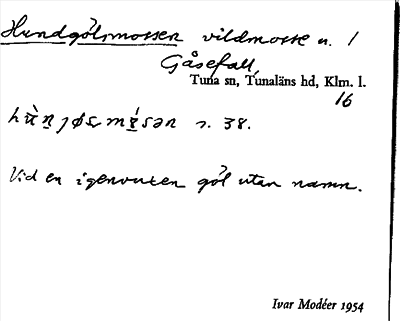 Hundgölsmossen vildmosse u. 1
Gåsefall,
Tuna sn, Tunaläns hd, Klm. l.
16
s. 38.
Vid en igenvuxen göl utan namn.
Ivar Modéer 1954